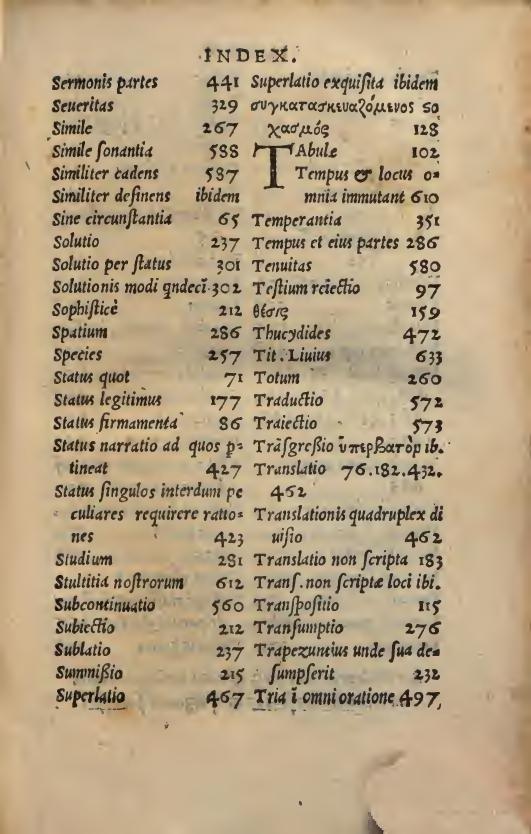 INDEX.
Sermonis partes 441
Seueritas 329
Simile 267
Simile ſonantia 588
Similiter cadens 587
Similiter deſinens ibidem
Sine circunſtantia 65
Solutio 237
Solutio per ſtatus 301
Solutionis modi qndecī 302
Sophiſticè 212
Spatium 286
Species 257
Status quot 71
Status legitimus 177
Status firmamenta 86
Status narratio ad quos p=
tineat 427
Status ſingulos interdum pe
culiares requirere ratio=
nes 423
Studium 281
Stultitia noſtrorum 612
Subcontinuatio 560
Subiectio 212
Sublatio 237
Summiſſio 215
Superlatio 467
Superlatio exquiſita ibidem
συγκατασκευαζόμενος σο
χασμός 128
TAbulæ 102
Tempus & locus o=
mnia immutant 610
Temperantia 351
Tempus et eius partes 286
Tenuitas 580
Teſtium reiectio 97
θέσις 159
Thucydides 472
Tit. Liuius 633
Totum 260
Traductio 572
Traiectio 573
Trāſgreſſio ὑπερβατὸρ ib.
Translatio 76.182.432.
462
Translationis quadruplex di
uiſio 462
Translatio non ſcripta 183
Tranſ. non ſcriptæ loci ibi.
Tranſpoſitio 115
Tranſumptio 276
Trapezuntius unde ſua de=
ſumpſerit 232
Tria ī omni oratione 497,